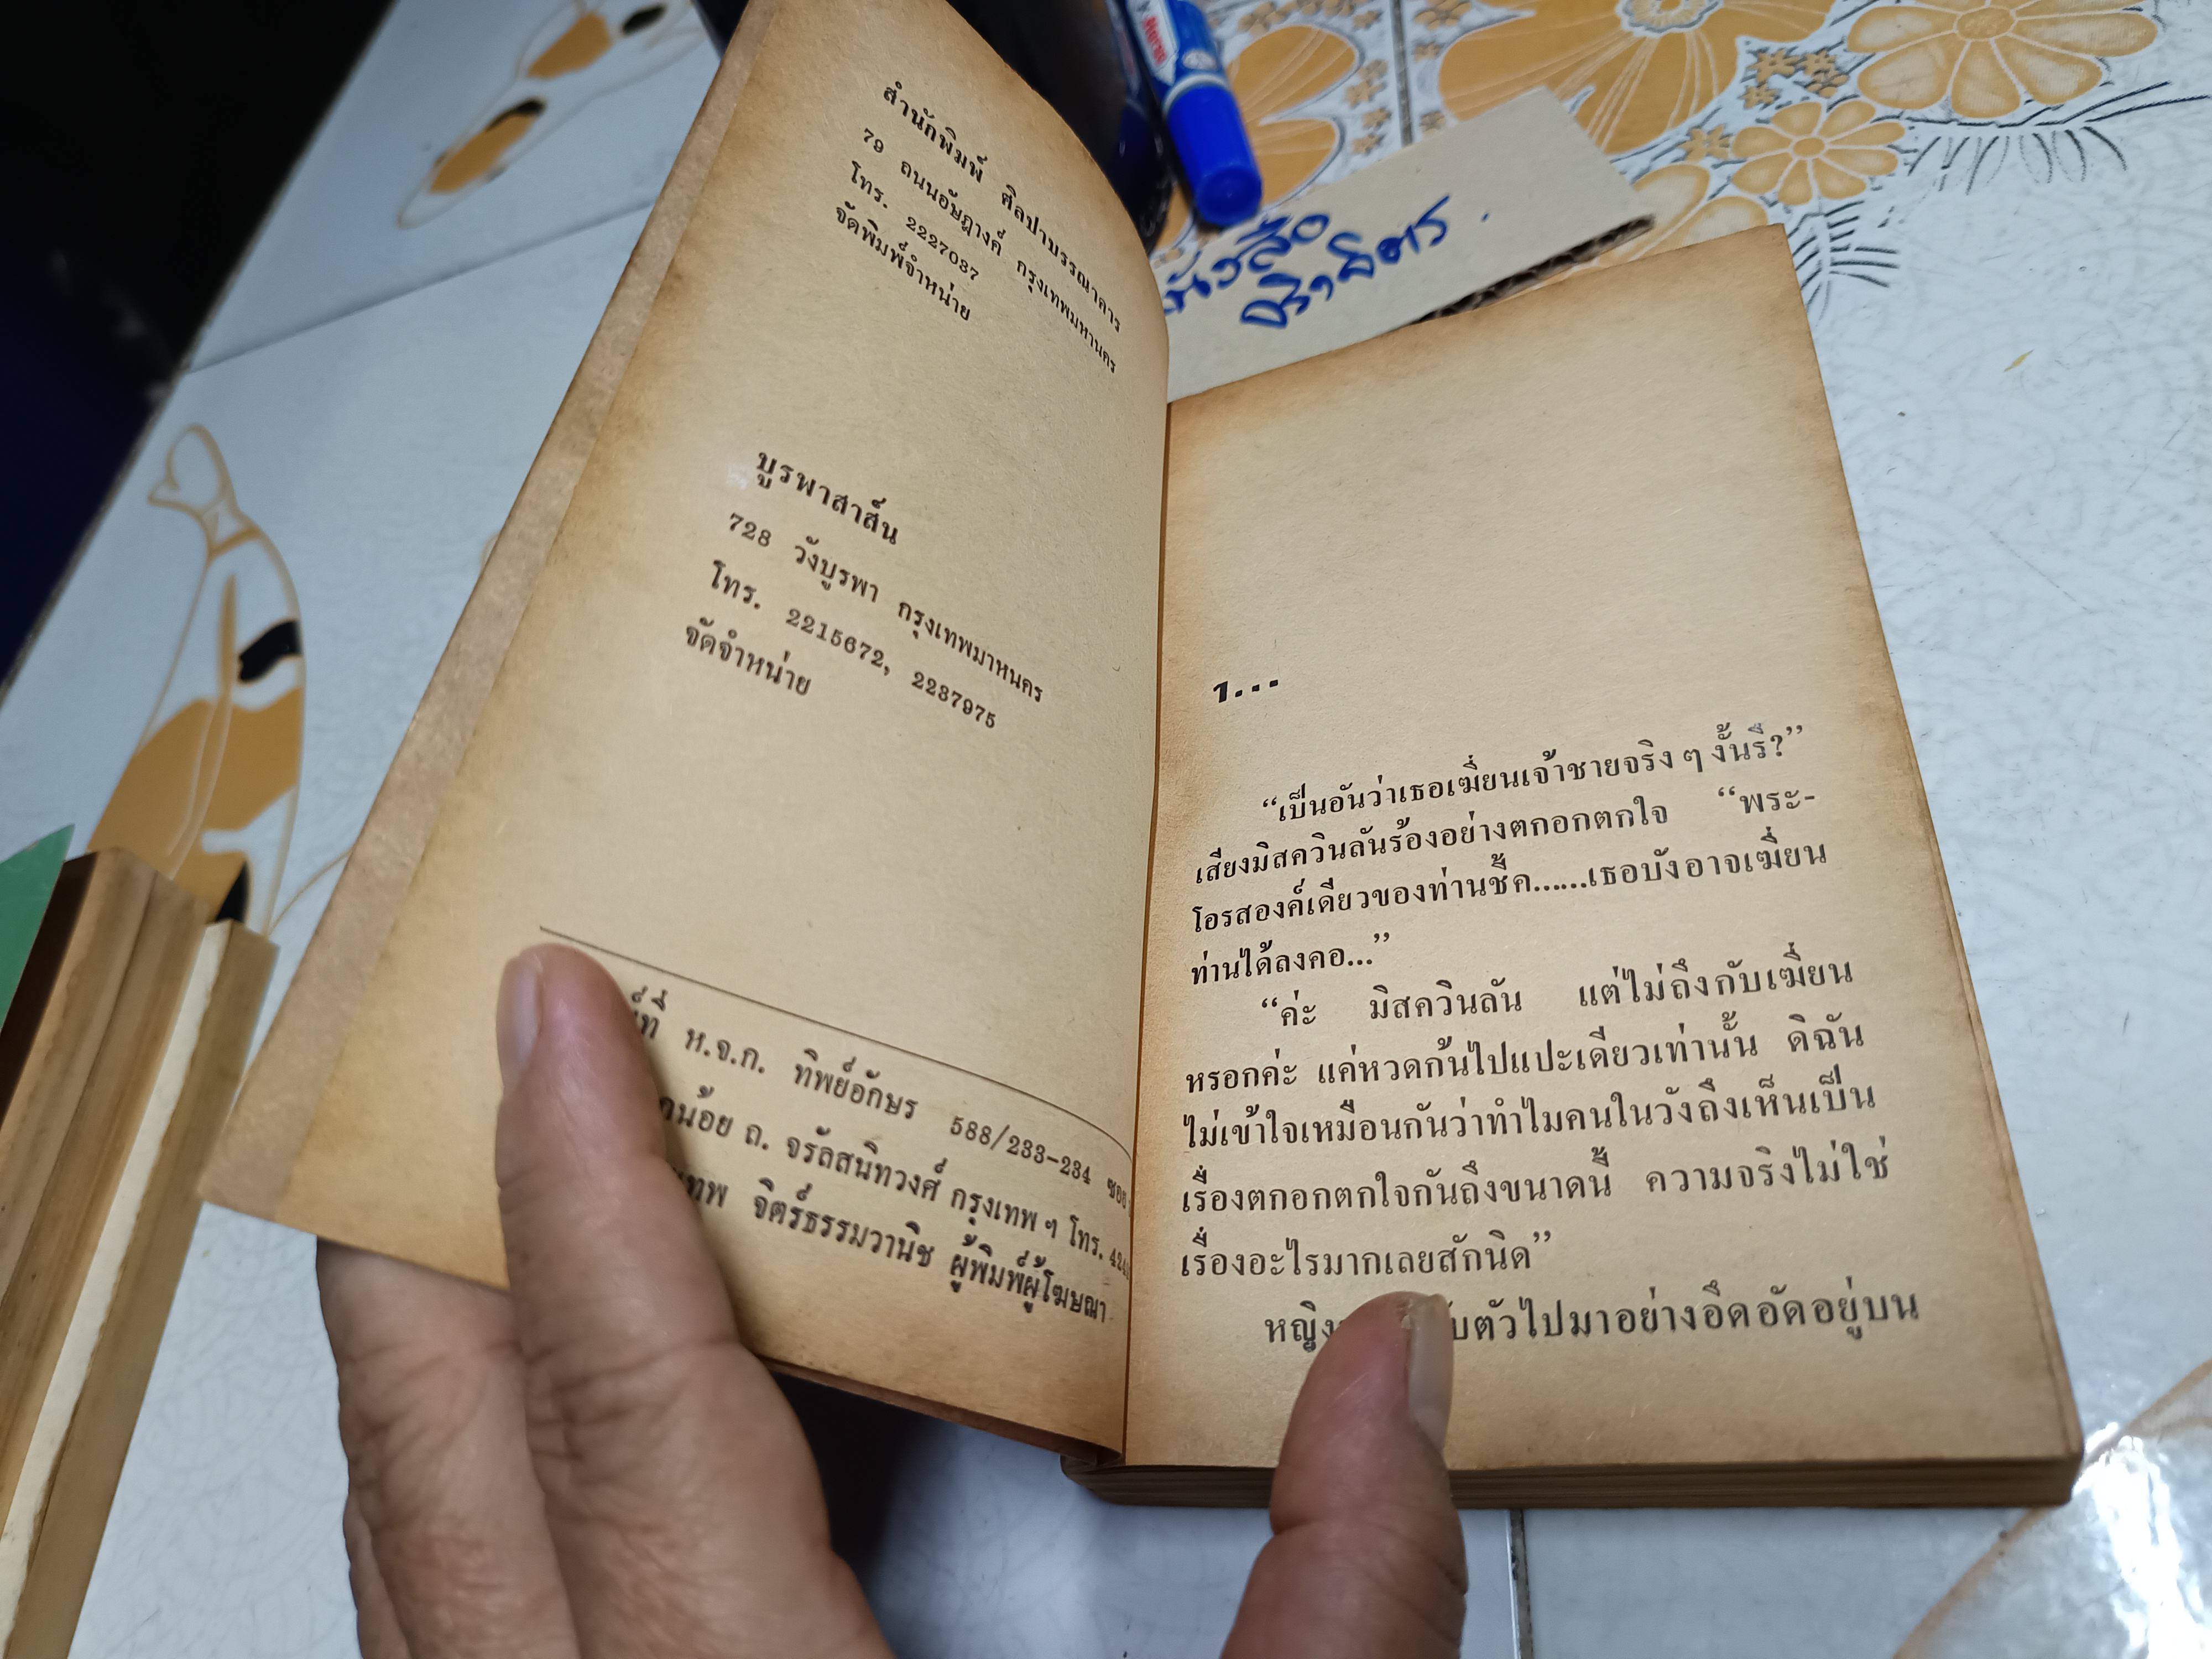 สำนักพิมพ์ ศิลปาบรรณาคาร
79 ถนนอัษฎางค์ กรุงเทพมหานคร
โทร. 2227037
จัดพิมพ์จำหน่าย
บูรพาสาส์น
728 วังบูรพา กรุงเทพมาหนคร
โทร. 2215672, 2237975
จัดจำหน่าย
ที่ ห.จ.ก. ทิพย์อักษร 588/233-234 ซอย
น้อย ถ. จรัลสนิทวงศ์ กรุงเทพ ๆ โทร. 424
จิตร์ธรรมวานิช ผู้พิมพ์ผู้โฆษณา
หนังสือ
1...
“เป็นอันว่าเธอเฆี่ยนเจ้าชายจริง ๆ งั้นรึ?”
เสียงมิสควินลันร้องอย่างตกอกตกใจ “พระ-
โอรสองค์เดียวของท่านชี้ค......เธอบังอาจเฆี่ยน
ท่านได้ลงคอ...”
“ค่ะ มิสควินลัน แต่ไม่ถึงกับเฆี่ยน
หรอกค่ะ แค่หวดก้นไปแปะเดียวเท่านั้น ดิฉัน
ไม่เข้าใจเหมือนกันว่าทำไมคนในวังถึงเห็นเป็น
เรื่องตกอกตกใจกันถึงขนาดนี้ ความจริงไม่ใช่
เรื่องอะไรมากเลยสักนิด”
หญิง ตัวไปมาอย่างอึดอัดอยู่บน